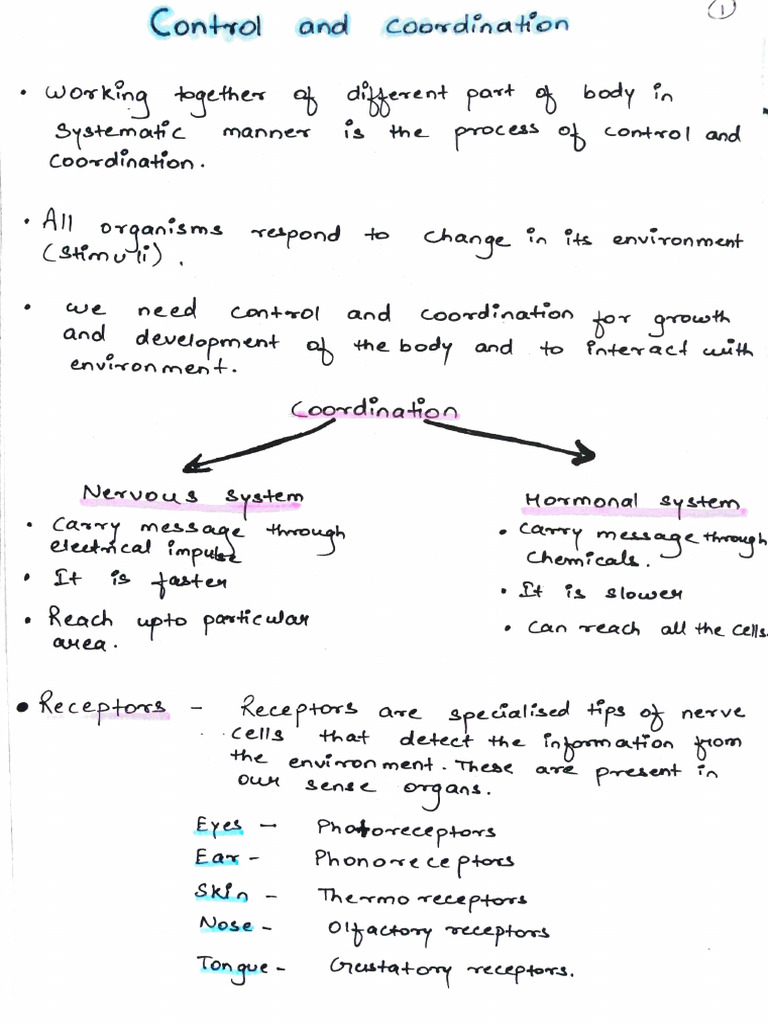 1
Control and coordination
• working together of different part of body in
systematic manner is the process of control and
coordination.
• All organisms respond to change in its environment
(stimuli).
• we need control and coordination for growth
and development of the body and to interact with
environment.
Coordination
Nervous system
• Carry message through
electrical impulse
• It is faster
• Reach upto particular
area.
Hormonal system
• Carry message through
chemicals.
• It is slower
• Can reach all the cells.
• Receptors - Receptors are specialised tips of nerve
cells that detect the information from
the environment. These are present in
our sense organs.
Eyes - Photoreceptors
Ear - Phonoreceptors
Skin - Thermoreceptors
Nose - Olfactory receptors
Tongue - Gustatory receptors.